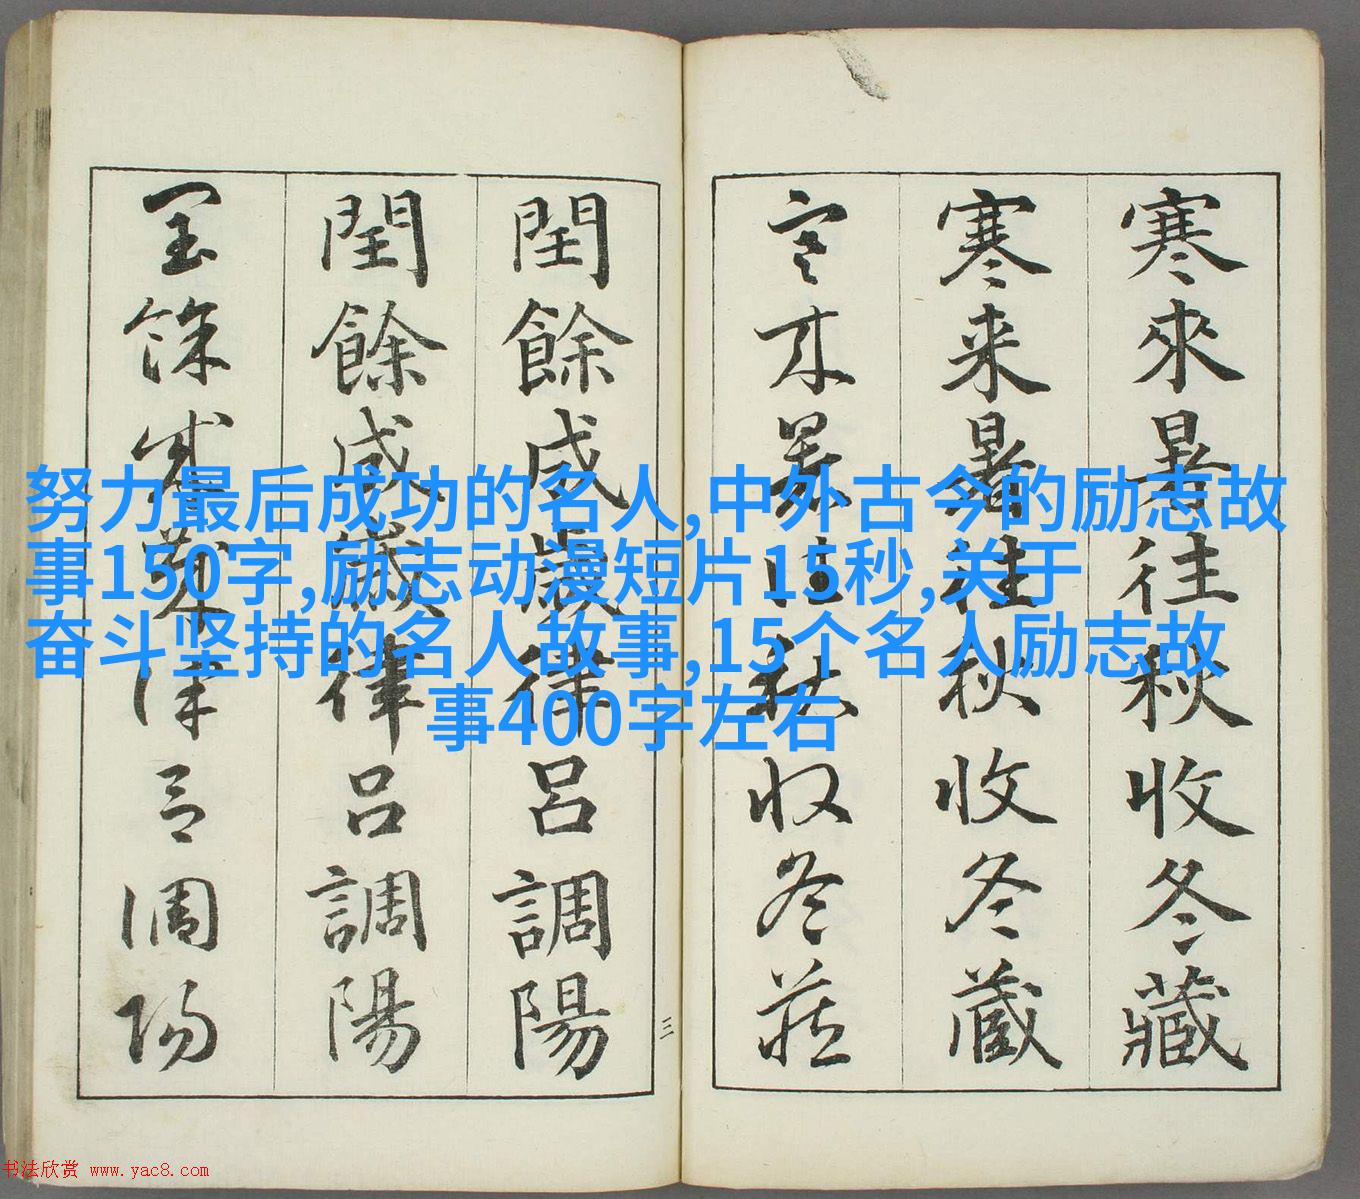 寒來暑往秋收冬藏
寒来暑往秋收冬蔵
寒来暑往秋收冬藏
閏餘成歲律呂調陽
閏餘成歲律呂調陽
閏餘成歲律呂調陽
三
努力最后成功的名人,中外古今的励志故
事150字,励志动漫短片15秒,关于
奋斗坚持的名人故事,15个名人励志故
事400字左右
书法欣赏 www.yac8.com